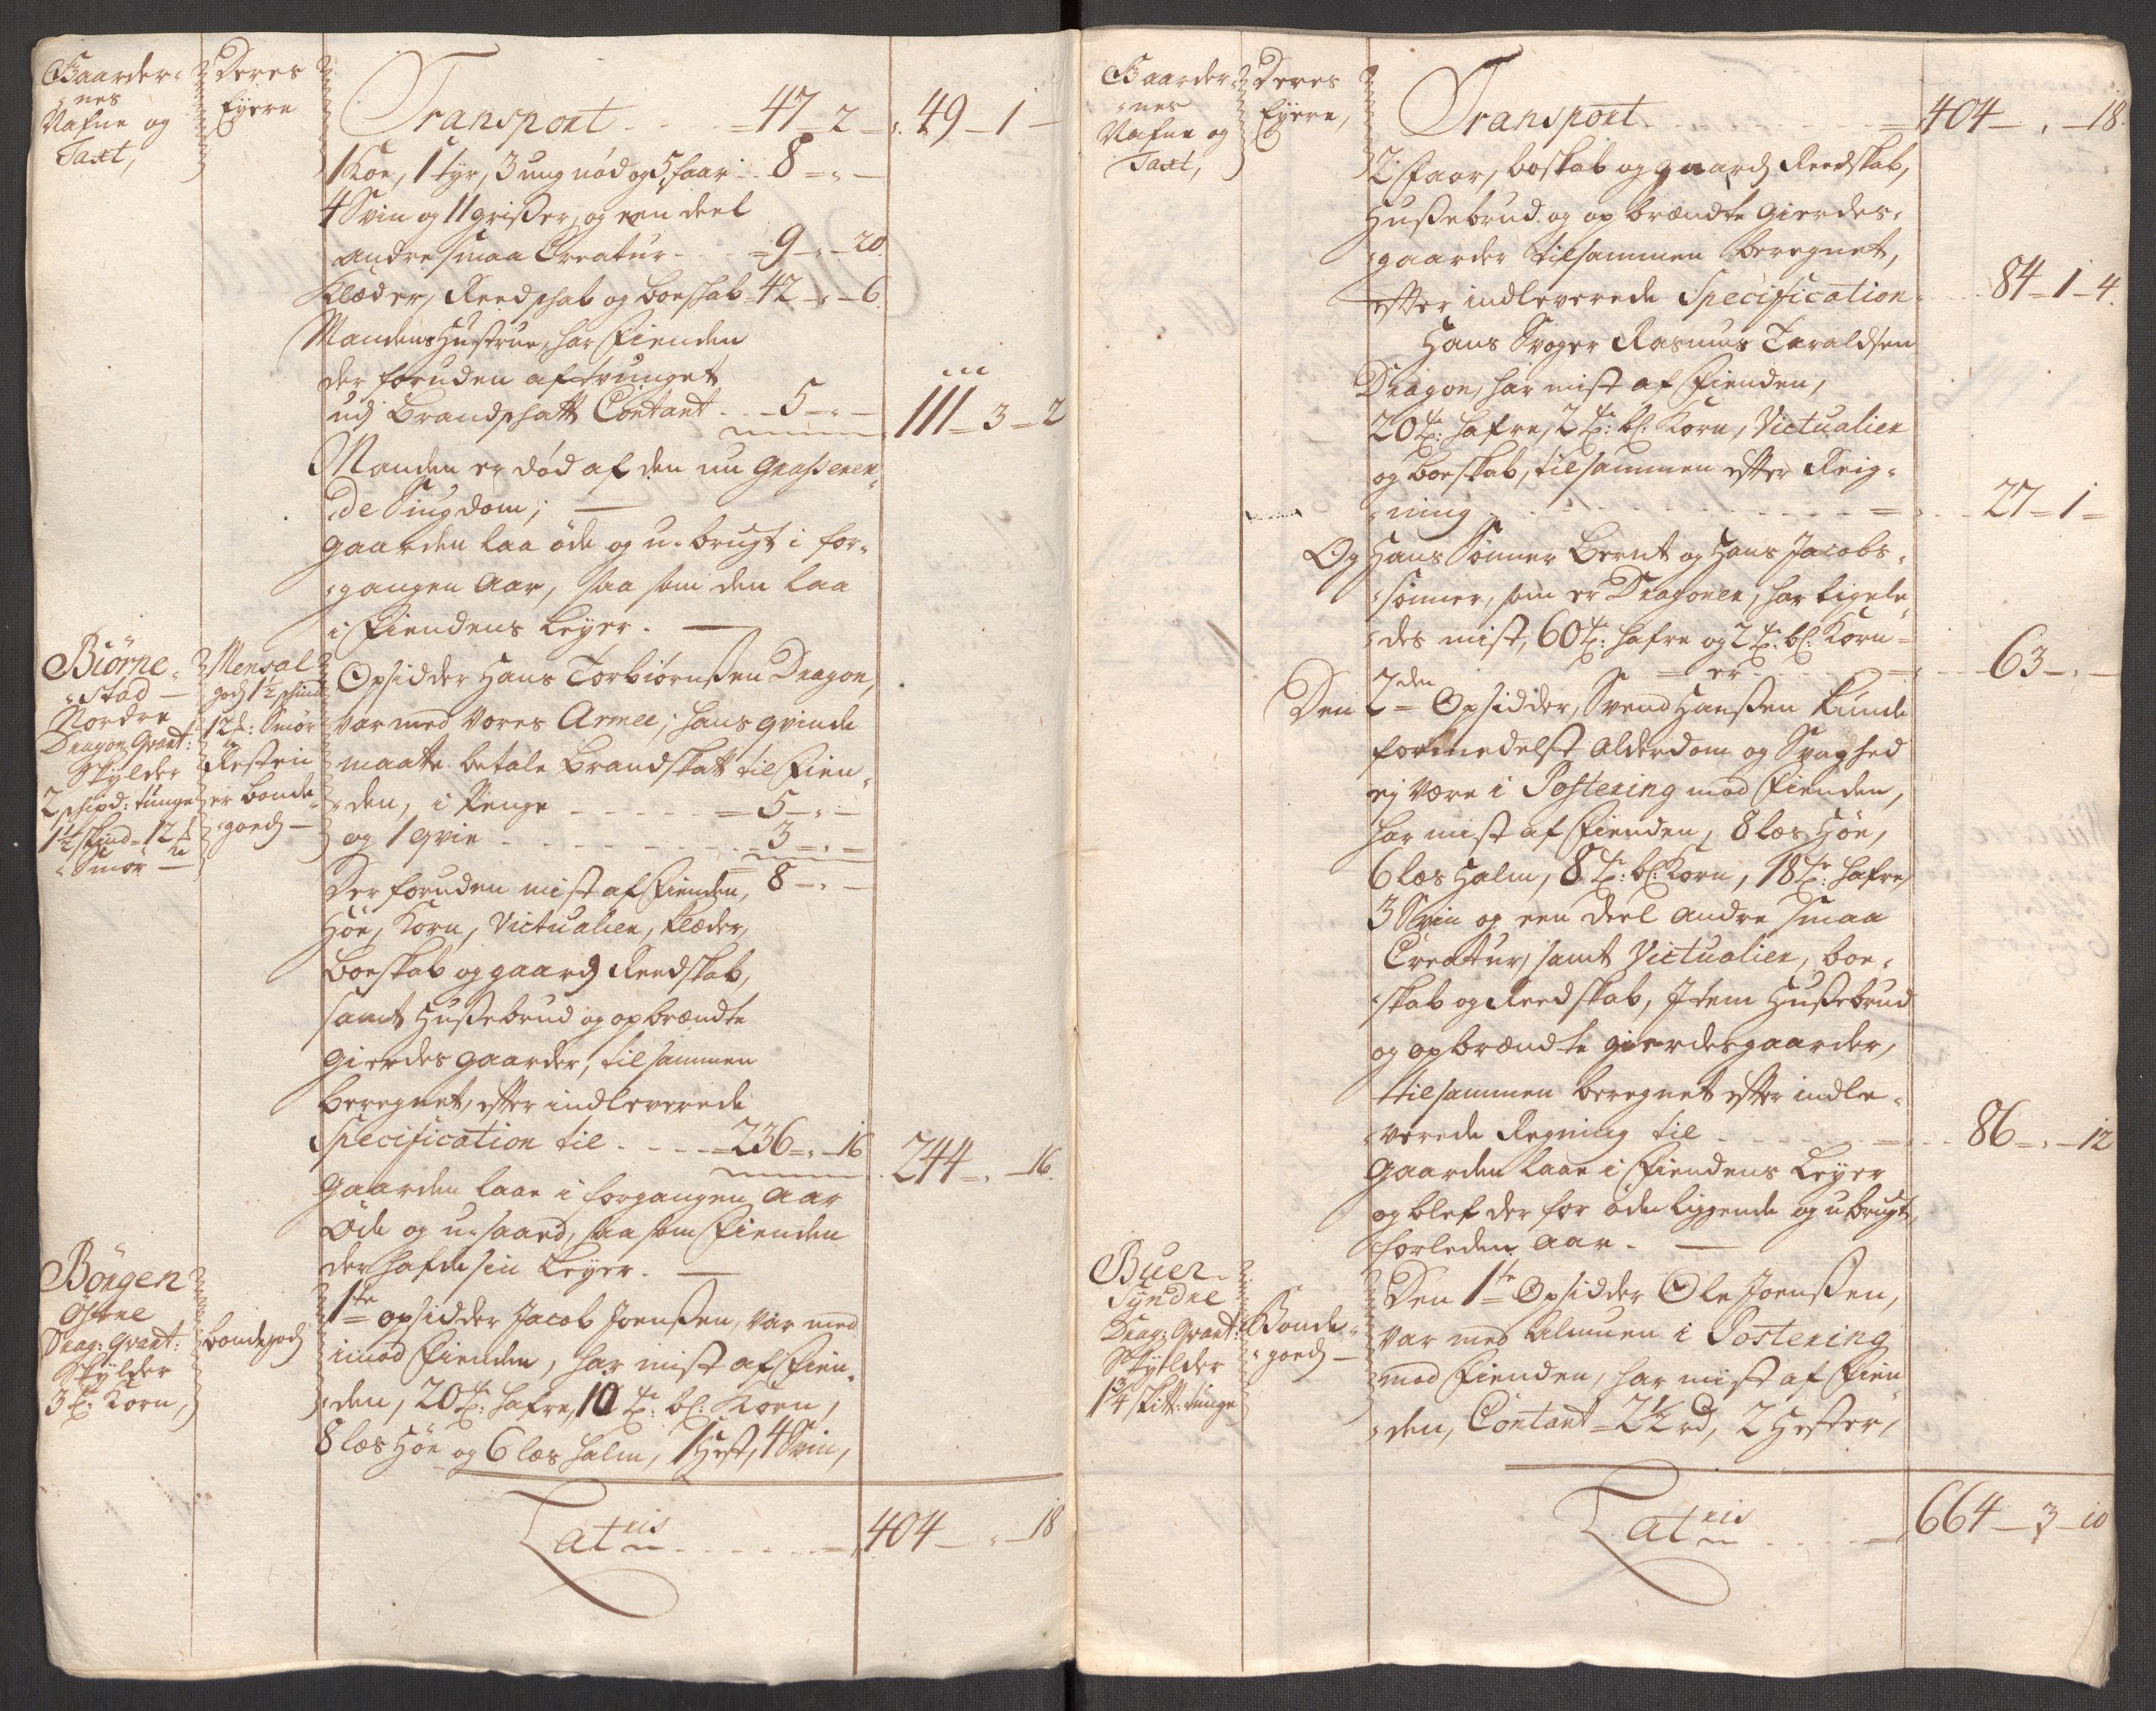 Gaarder-
-nes
Nafne og
Taxt,
Deres
Eÿere
Transport - - - 47 - 2 - „
49 - 1 -
1 Koe, 1 tyr, 3 ung nöd og 5 faar - 8 - „ -
4 Svin og 11 grißer, og een deel
andre smaa Creatur - - 9 - „ - 20
Klæder, Reedschab og boeschab - 42 - „ - 6
Mandens Hustrue, har Fienden
der foruden aftvunget
udj Brandschatt Contant - - 5 - „ -
111 - 3 - 2
Manden er död af den nu Grasseren-
-de Siugdom; -
gaarden laa öde og u-brugt i for-
-gangen Aar, saa som den laa
i Fiendens Leÿer. -
Biörne-
-stad -
Nordre
Dragon Qvart:
Skylder
2 schipd: tunge
1½ skind - 12 ℔
Smör -
Mensal
godz 1½ skind
12 ℔: Smör
Resten
er bonde-
-goedz -
Opsidder Hans Torbiörnßen Dragon,
var med vores Armee; hans qvinde
maatte betale Brandskatt til Fien-
-den, i Penge - - - 5 - „ -
og 1 qvie - - - 3 - „ -
Der foruden mist af Fienden, 8 - „ -
Höe, Korn, Victualier, klæder,
boeskab og gaardz Reedskab,
samt Hußebrud og opbrændte
gierdesgaarder, tilsammen
beregnet, efter indleverede
Specification til - - - 236 - „ - 16
244 - „ - 16
Gaarden laae i forgangen Aar
Öde og u-saaed, saa som Fienden
der hafde sin Leÿer. -
Börgen
Östre
Drag: Qvart:
Skÿlder
3 tr: Korn,
bondegodz
1ste opsidder Jacob Joenßen, var med
imod Fienden, har mist af Fien-
-den, 20 tr: hafre, 10 tr: bl: Korn,
8 læs Höe og 6 læs halm, 1 Hest, 4 Svin,
Lateris - - - 404 - „ - 18
Gaarder-
-nes
Nafne og
Taxt,
Deres
Eÿere,
Transport - - - 404 - „ - 18
2 Faar, boskab og gaardz Reedskab,
Hußebrud og opbrændte Gierdes-
-gaarder tilsammen beregnet,
efter indleverede Specification - - 84 - 1 - 4
Hans Svoger Rasmus Taraldsen
Dragon, har mist af Fienden,
20 tr: hafre, 2 tr: bl: Korn, Victualier
og boeskab, tilsammen efter Reig-
-ning - - - 27 - 1 -
Og Hans Sönner Bernt og Hans Jacobs-
-sönner, som er Dragoner, har ligele-
-des mist, 60 tr: hafre og 2 tr: bl: Korn -
- er - - - 63 - „ -
Den 2den Opsidder, Svend Hanßen kunde
formedelst Alderdom og Svaghed
ej være i Postering mod Fienden,
har mist af Fienden, 8 læs Höe,
6 læs Halm, 8 tr: bl: Korn, 18 tr: hafre
3 Svin og een deel andre smaa
Creatur, samt Victualier, boe-
-skab og Reedskab, Item Hußebrud
og opbrændte gierdesgaarder,
tilsammen beregnet efter indle-
-verede Regning til - - - 86 - „ - 12
Gaarden laae i Fiendens Leÿer
og blef der for öde liggende og ubrugt,
forleden Aar. -
Buer
Syndre
Drag: Qvart:
Skÿlder
1¾ skitt: tunge
Bonde-
-goedz -
Den 1ste Opsidder Ole Joenßen,
var med Almuen i Postering
mod Fienden, har mist af Fien-
-den, Contant - 2½ rd, 2 Hester,
Lateris - - - 664 - 3 - 10